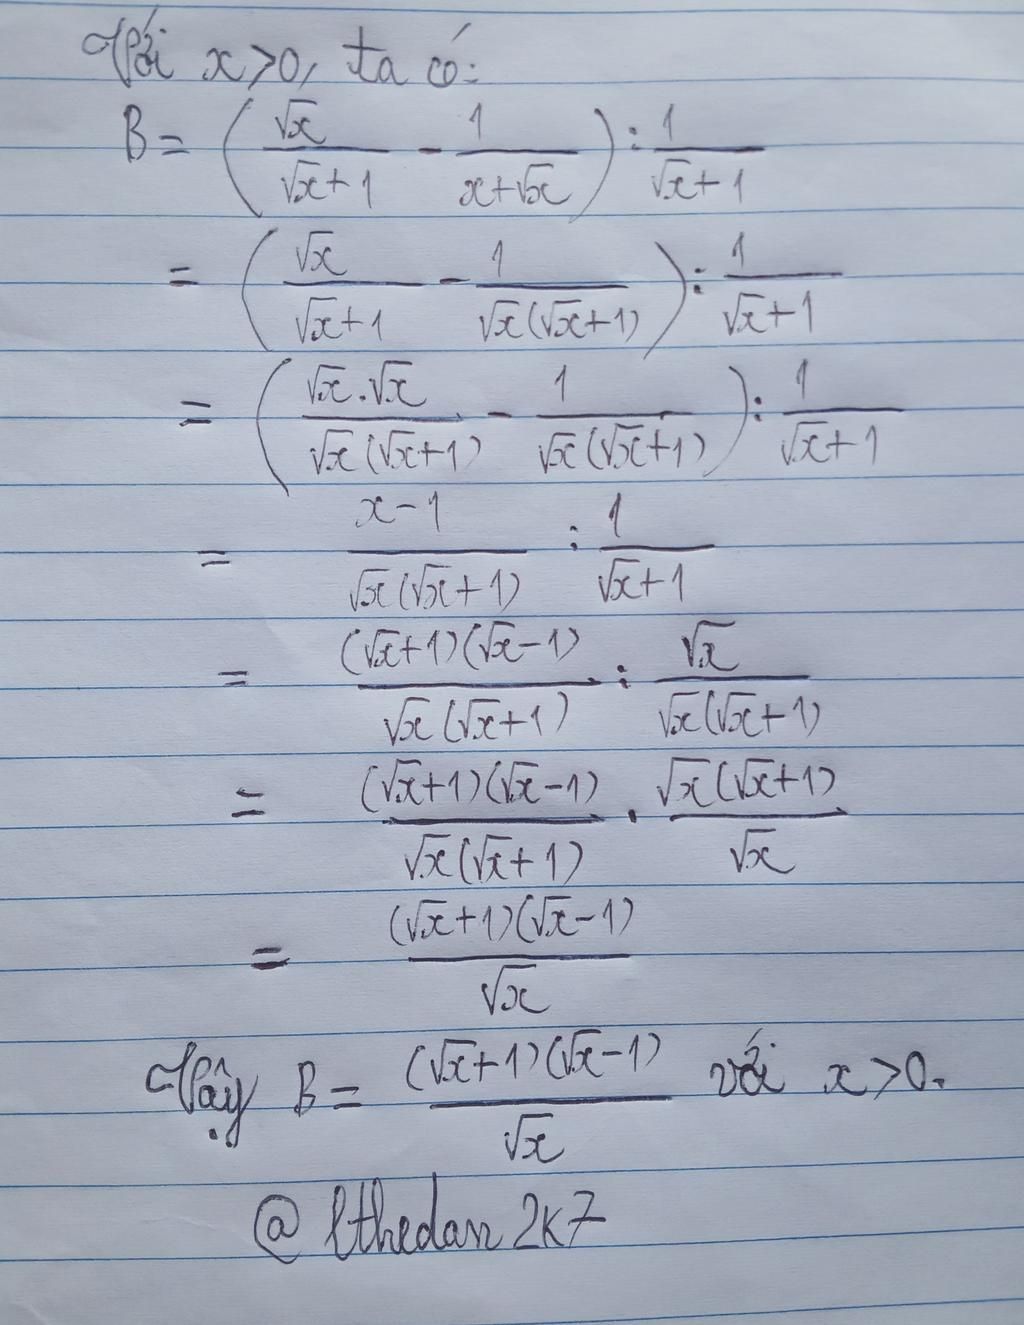 Với x>0, ta có:
B = (√x/(√x+1) - 1/(x+√x)) : 1/(√x+1)
= (√x/(√x+1) - 1/(√x(√x+1))) : 1/(√x+1)
= (√x.√x/(√x(√x+1)) - 1/(√x(√x+1))) : 1/(√x+1)
= (x-1)/(√x(√x+1)) : 1/(√x+1)
= (√x+1)(√x-1)/(√x(√x+1)) : √x/(√x(√x+1))
= (√x+1)(√x-1)/(√x(√x+1)) . √x(√x+1)/√x
= (√x+1)(√x-1)/√x
Vậy B = (√x+1)(√x-1)/√x với x>0.
@lthedan2k7